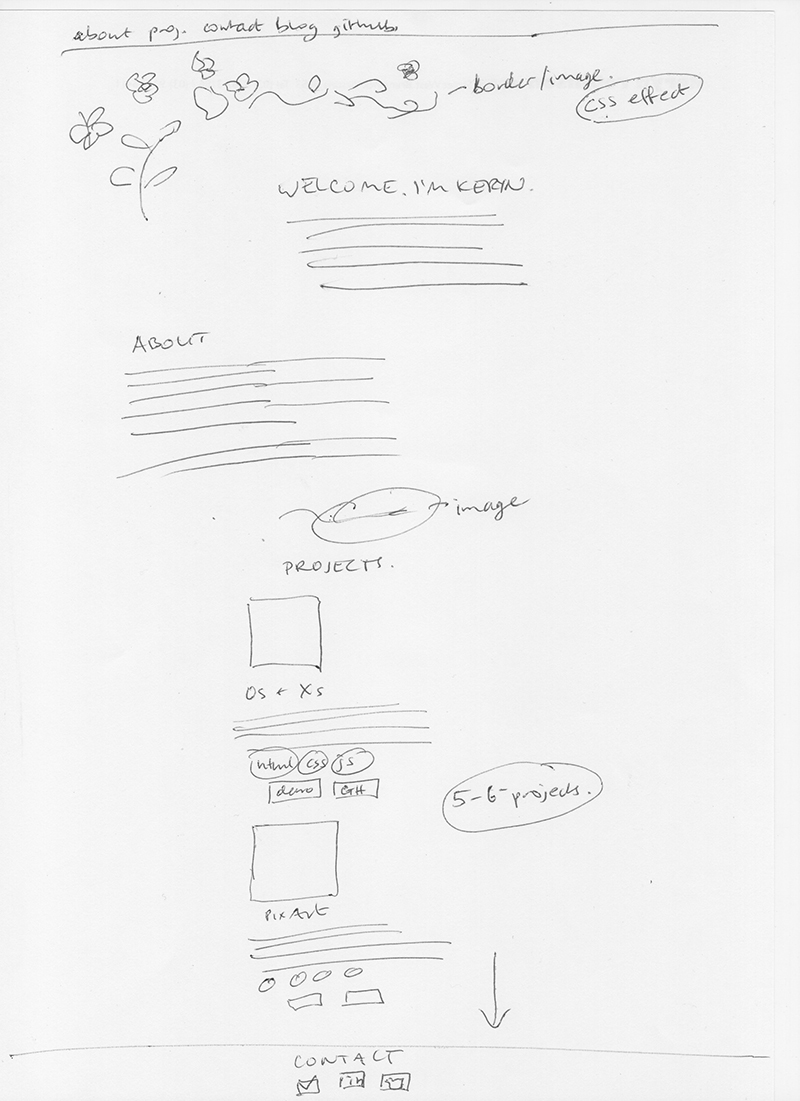 about proj. contact blog github.
border/image.
css effect
WELCOME. I'M KERYN.
ABOUT
image
PROJECTS.
Os + Xs
html css js
demo GH
5-6-projects.
PixArt
CONTACT
in